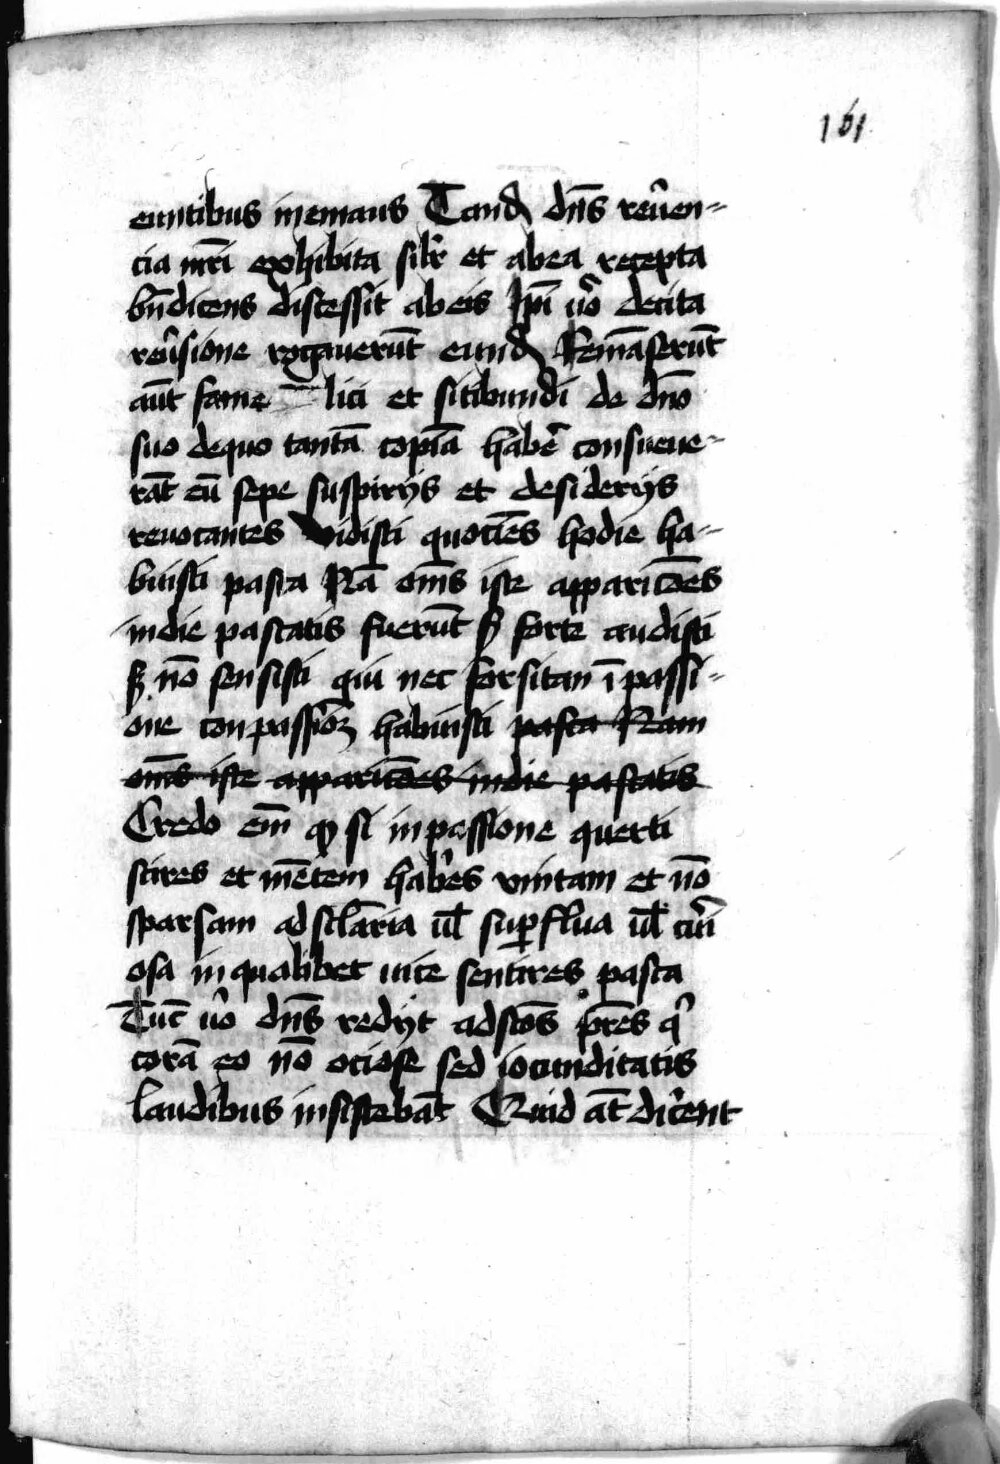 161
euntibus in emaus Tandꝫ dn̄s reu̾en⸗
cia mr̄i exhibita silr̄ et ab ea recepta
bn̄dicens discessit ab eis Ip̄i u̾o de cita
reu̾sione rogauerūt eundꝫ Remāserūt
aūt fame lici et sitibundi de dn̄o
suo de quo tantā copiā habe̾ consueue⸗
rāt eū sepe suspirijs et desiderijs
reuocantes Vidisti quociēs hodie ha⸗
buisti pasca Nā om̄s iste apparicōes
in die pascatis fuerūt sꝫ forte audisti
sꝫ nō sensisti qui nec forsitan ī passi⸗
one conpassiōꝫ habuisti pasca Nam
om̄s iste apparicōes in die pascatis
Credo em̄ ꝙ si in passione
scires et mētem habe̾s vnitam et nō
sparsam ad sclāria ul̄ suꝑflua ul̄ cur̄i
osa in qualibet sentires pasca
Tūc u̾o dn̄s redijt ad scōs pr̄es qͥ
corā eo nō ociose sed iocunditatis
laudibus insistebāt Quid at̄ dice̾nt